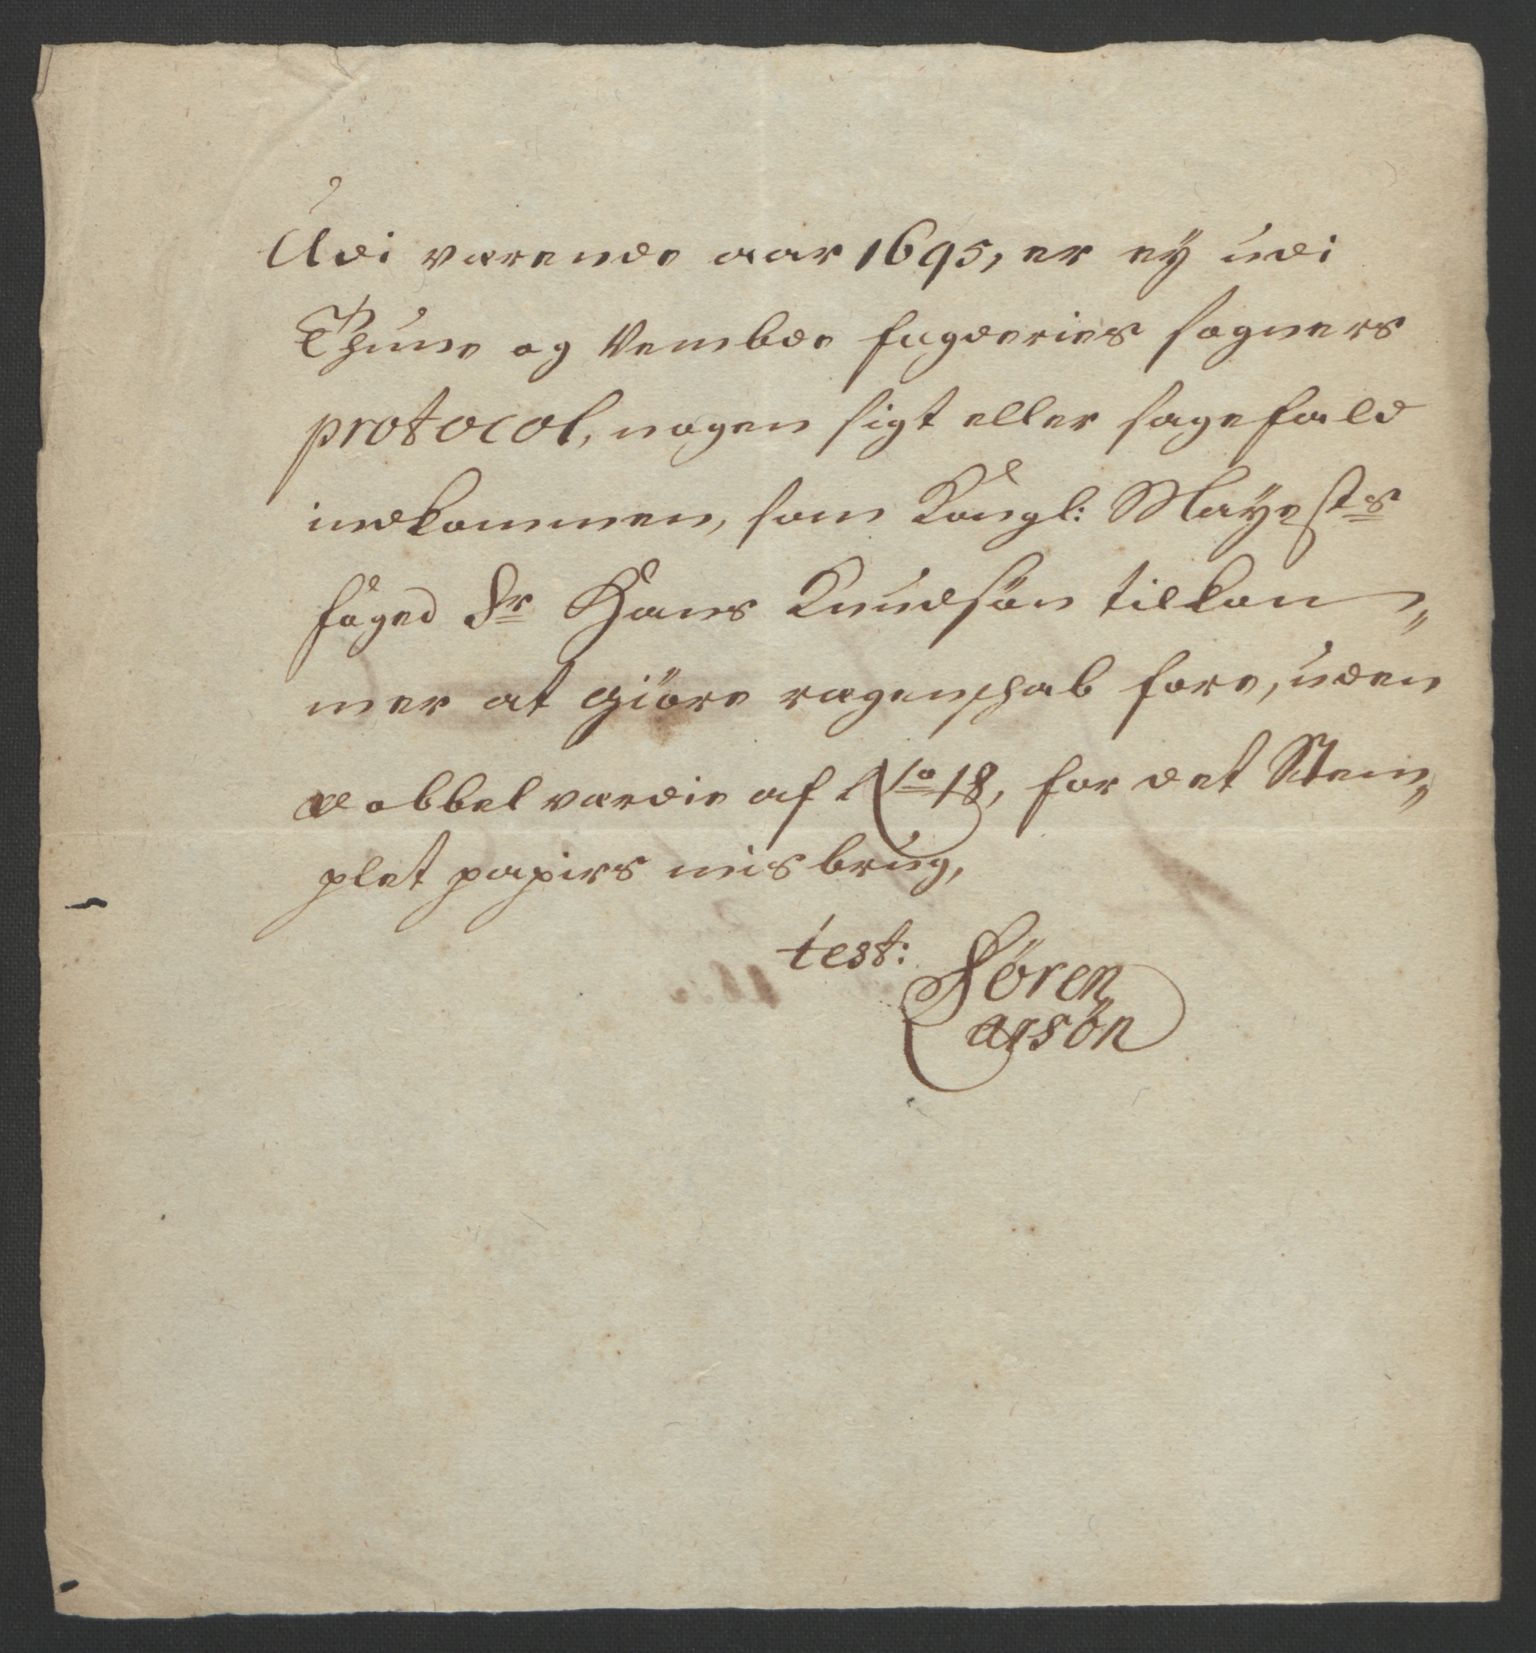 Udi værende aar 1695, er ey udi
Thune og Vembde fugderies sogners
protocol, nogen sigt eller sagefald
indkommen, som Kongl: Mayests
foged Sr Hans Knudsön tilkom„
mer at giöre regenschab fore, uden
dobbel værdie af No 18, for det Stem„
plet papirs misbrug,
test:
Sören
Larsön